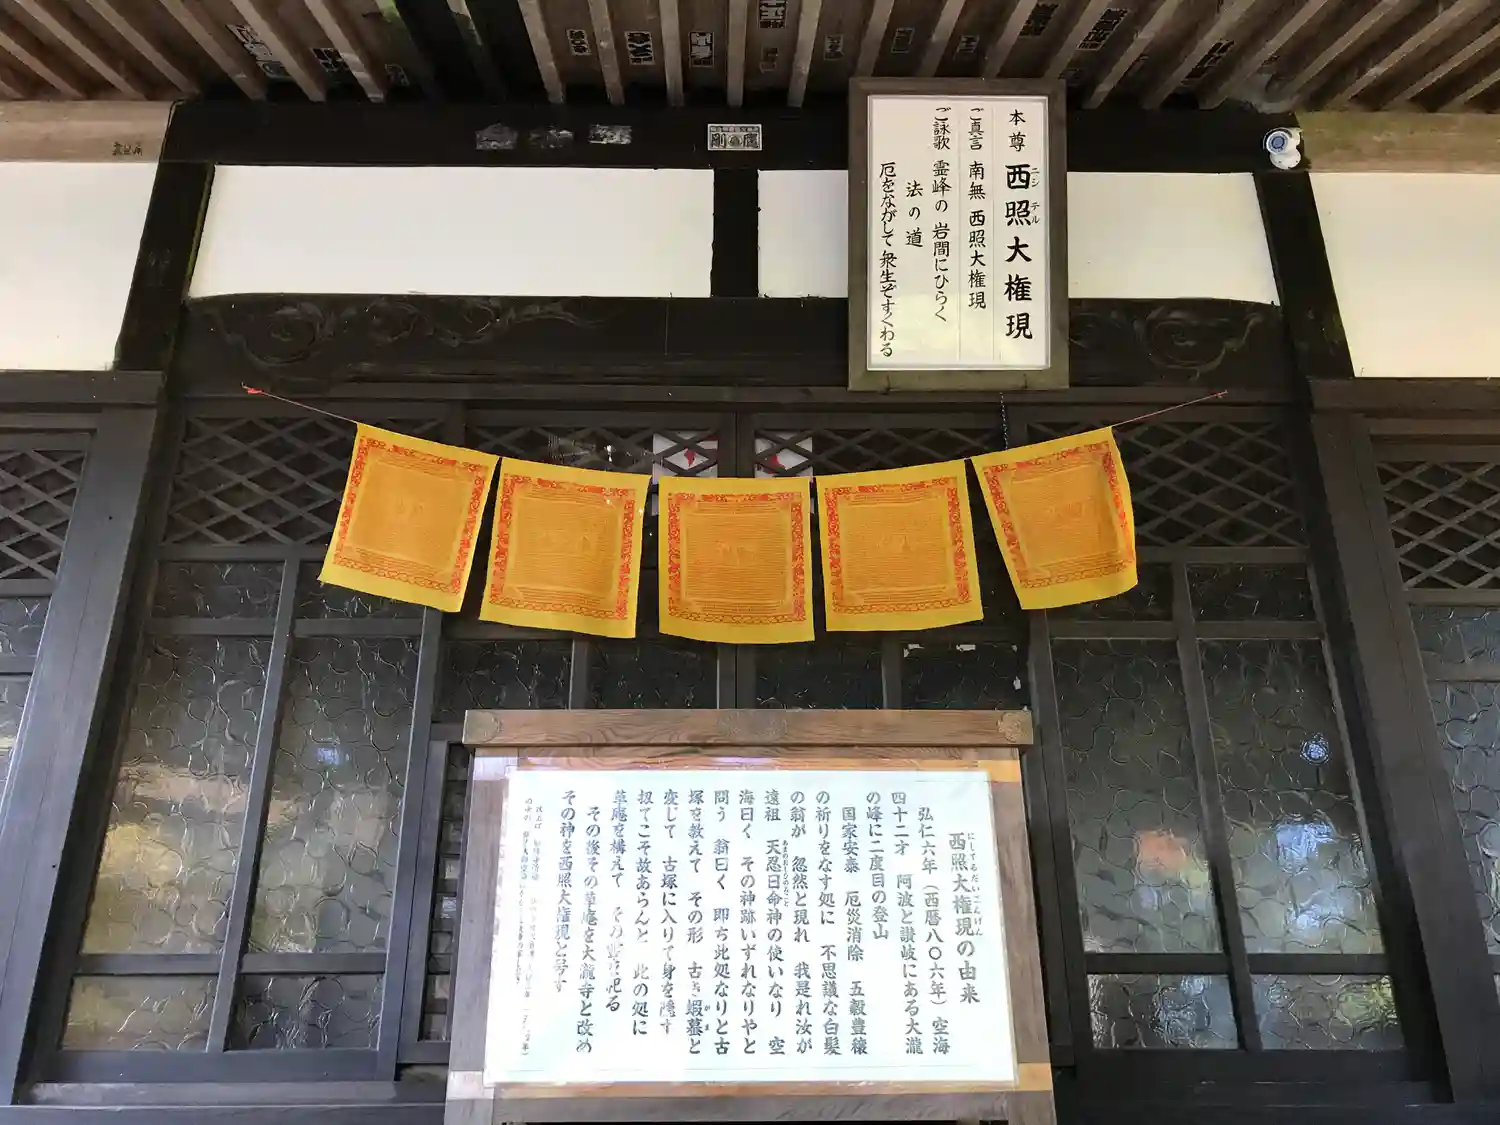 本尊 西照大権現
ニシ テル
ご真言 南無 西照大権現
ご詠歌 霊峰の 岩間にひらく
法の道
厄をながして 衆生ぞすくわる
西照大権現の由来
にしてるだいごんげん
弘仁六年（西暦八〇六年） 空海
四十二才 阿波と讃岐にある大瀧
の峰に二度目の登山
国家安泰 厄災消除 五穀豊穣
の祈りをなす処に 不思議な白髪
の翁が 忽然と現れ 我是れ汝が
遠祖 天忍日命神の使いなり 空
あまのおしひのみこと
海曰く その神跡いずれなりやと
問う 翁曰く 即ち此処なりと古
塚を教えて その形 古き蝦蟇と
がま
変じて 古塚に入りて身を隠す
扨てこそ故あらんと 此の処に
草庵を構えて その霊を祀る
その後その草庵を大瀧寺と改め
その神を西照大権現と号す